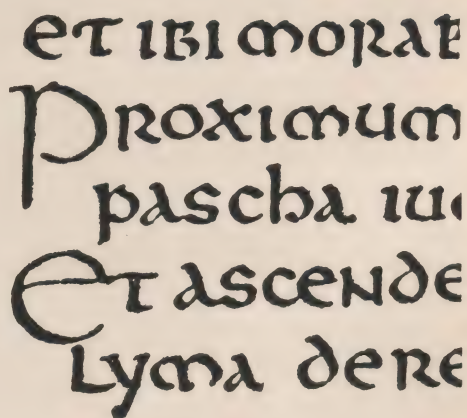 et ibi morab
Proximum
pascha iu
Et ascende
lyma dere